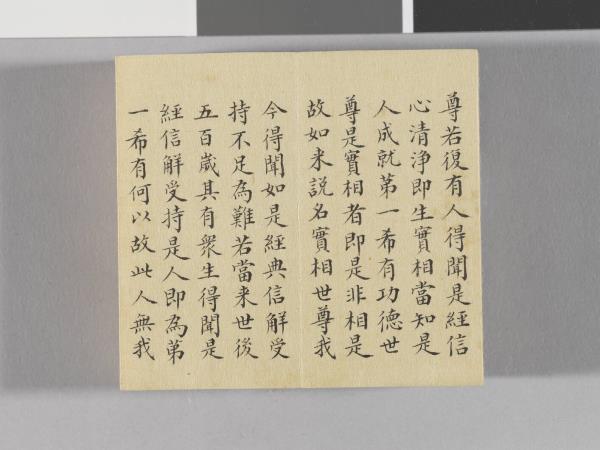 尊若復有人得聞是經信
心清淨即生實相當知是
人成就第一希有功德世
尊是實相者即是非相是
故如来說名實相世尊我
今得聞如是經典信解受
持不足為難若當来世後
五百歲其有衆生得聞是
經信解受持是人即為第
一希有何以故此人無我